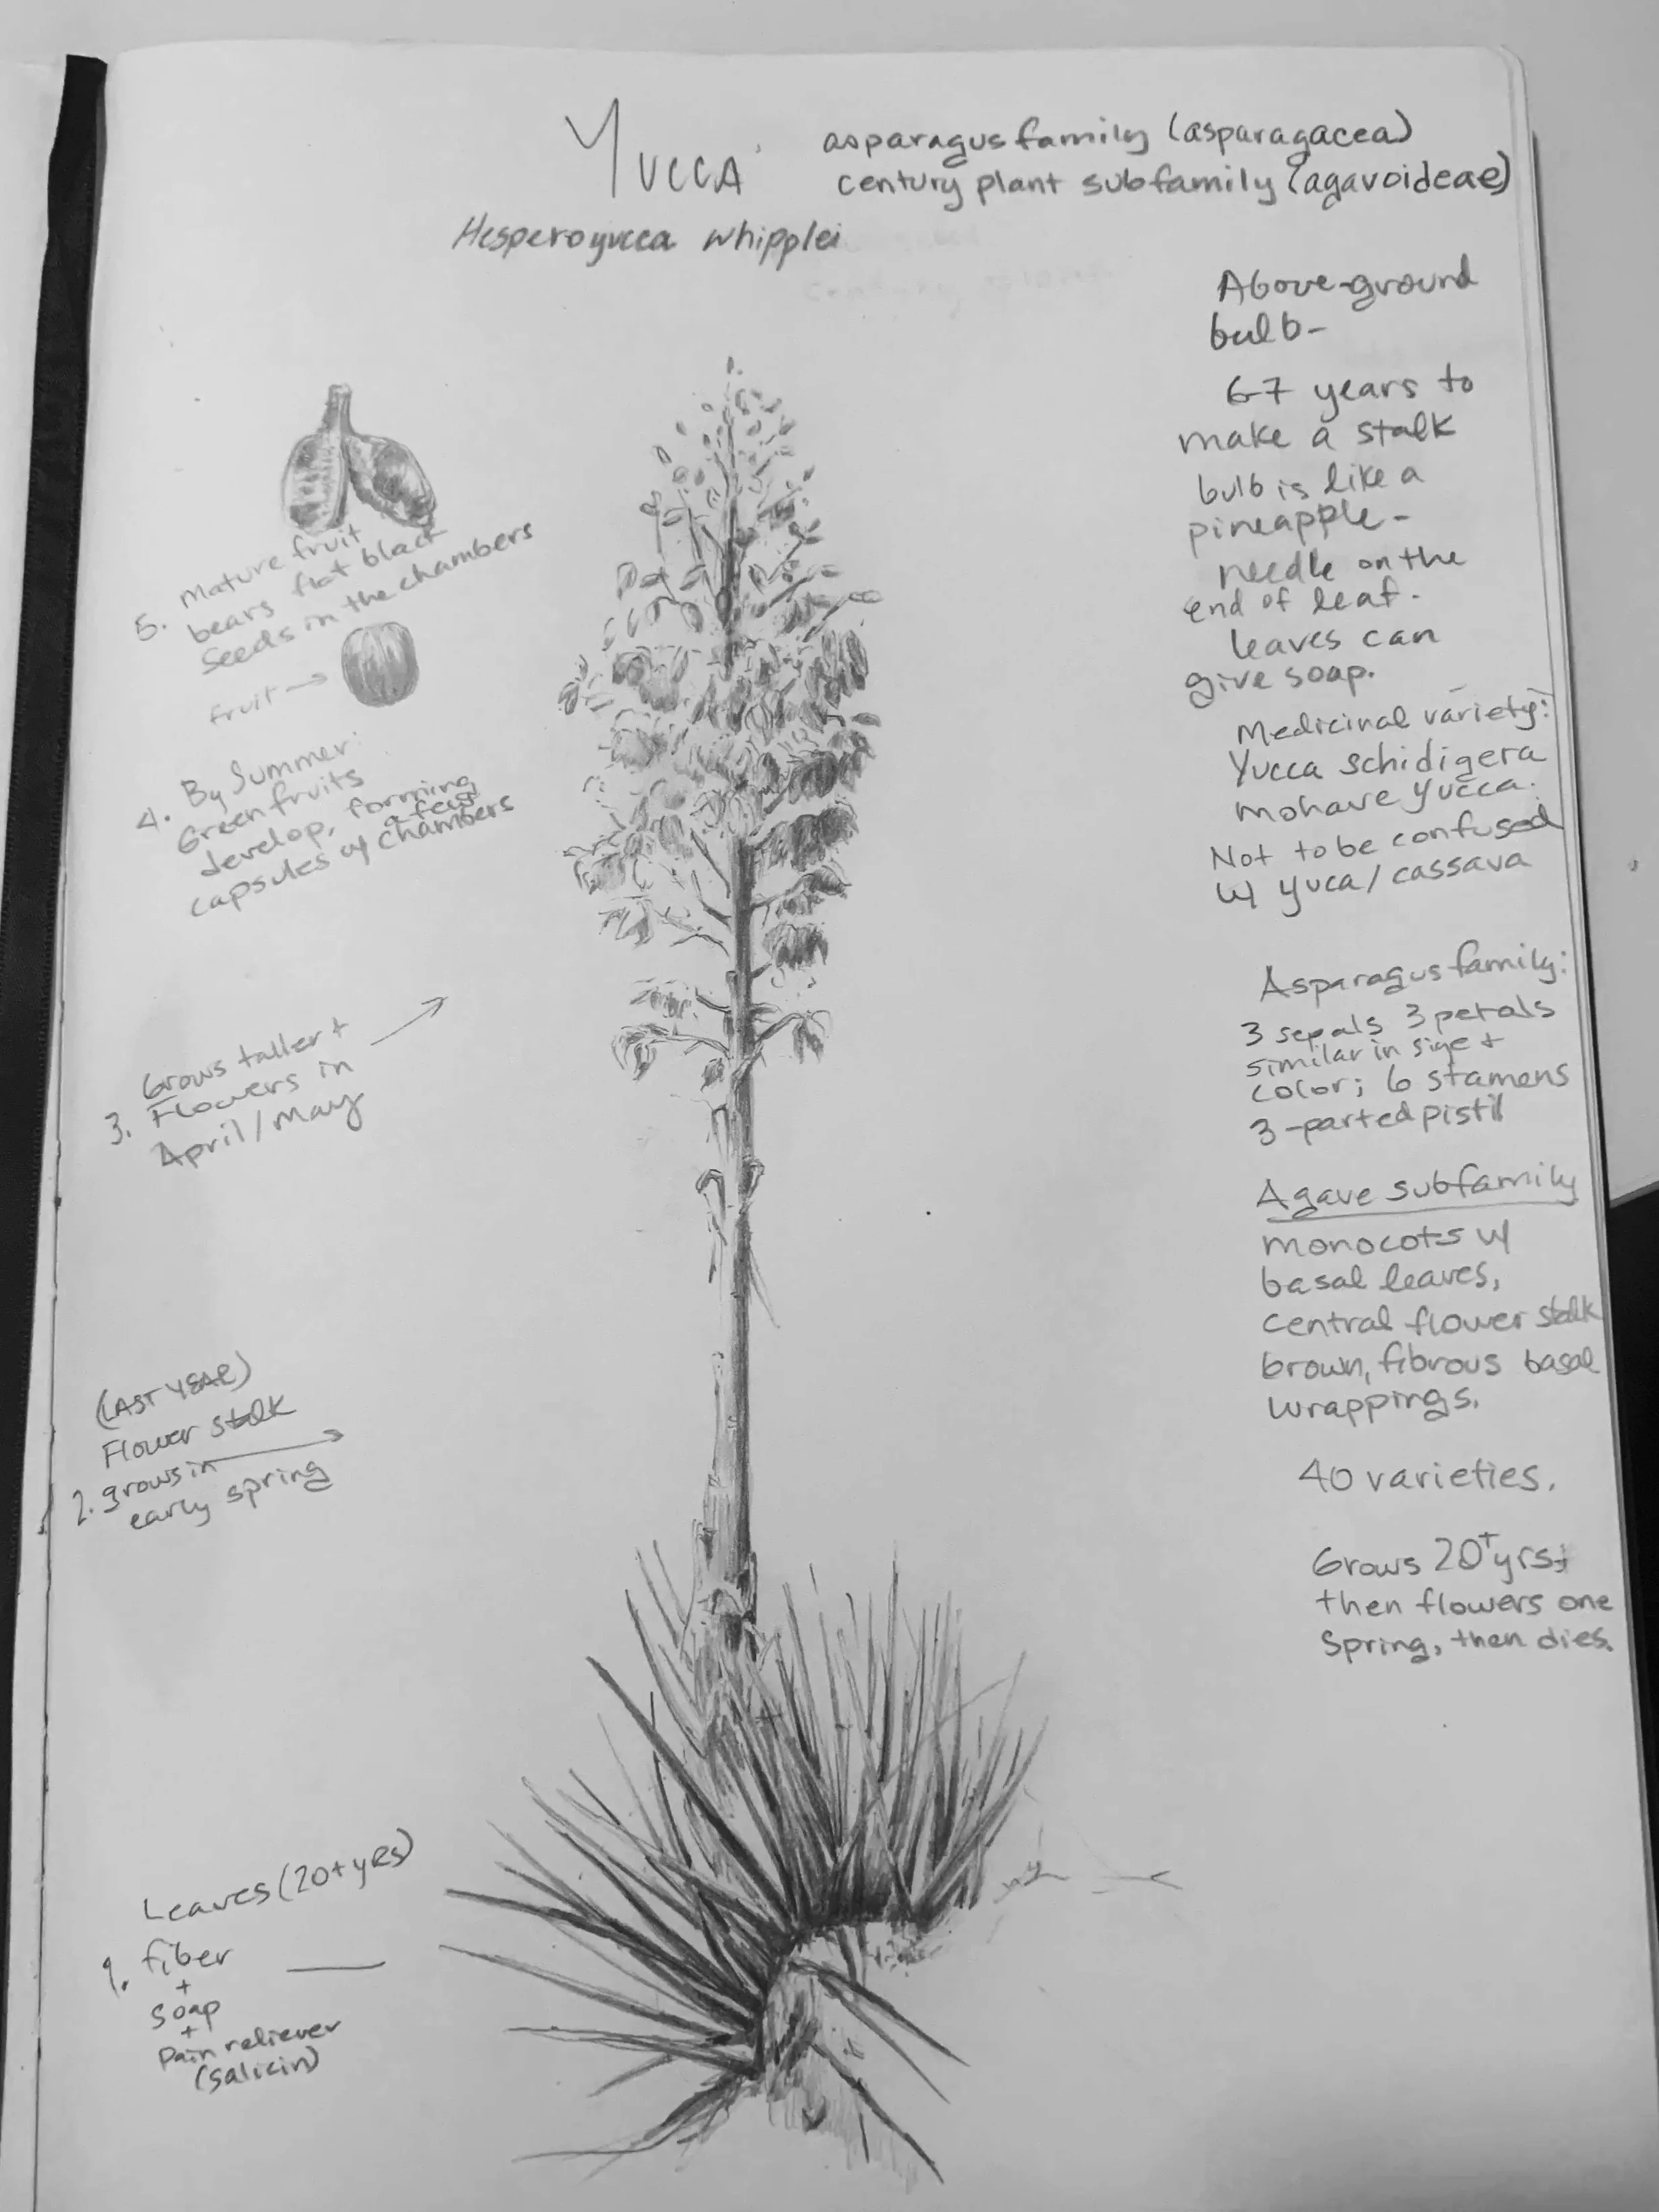 YUCCA
asparagus family (asparagacea)
century plant subfamily (agavoideae)
Hesperoyucca whipplei
Above-ground
bulb-
6-7 years to
make a stalk
bulb is like a
pineapple-
needle on the
end of leaf.
leaves can
give soap.
Medicinal variety:
Yucca schidigera
mohave yucca.
Not to be confused
w/ yuca/cassava
Asparagus family:
3 sepals 3 petals
similar in size +
color; 6 stamens
3-parted pistil
Agave subfamily
monocots w/
basal leaves,
central flower stalk
brown, fibrous basal
wrappings.
40 varieties.
Grows 20+ yrs;
then flowers one
spring, then dies.
5. Mature fruit
bears flat black
seeds in the chambers
fruit →
4. By Summer:
Green fruits
develop, forming
a few
capsules w/ chambers
Grows taller +
3. Flowers in
April/May
(LAST YEAR)
Flower stalk
2. grows in
early spring
Leaves (20+ yRs)
1. fiber
+
soap
+
Pain reliever
(salicin)